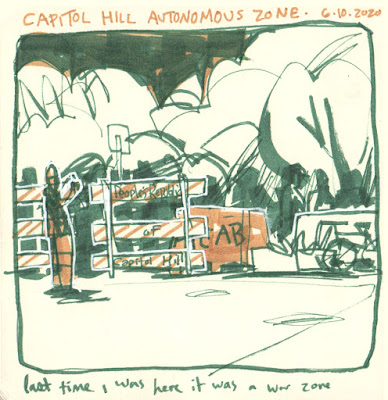 CAPITOL HILL AUTONOMOUS ZONE. 6.10.2020
People's Republic
of
CAB
Capitol Hill
last time I was here it was a war zone